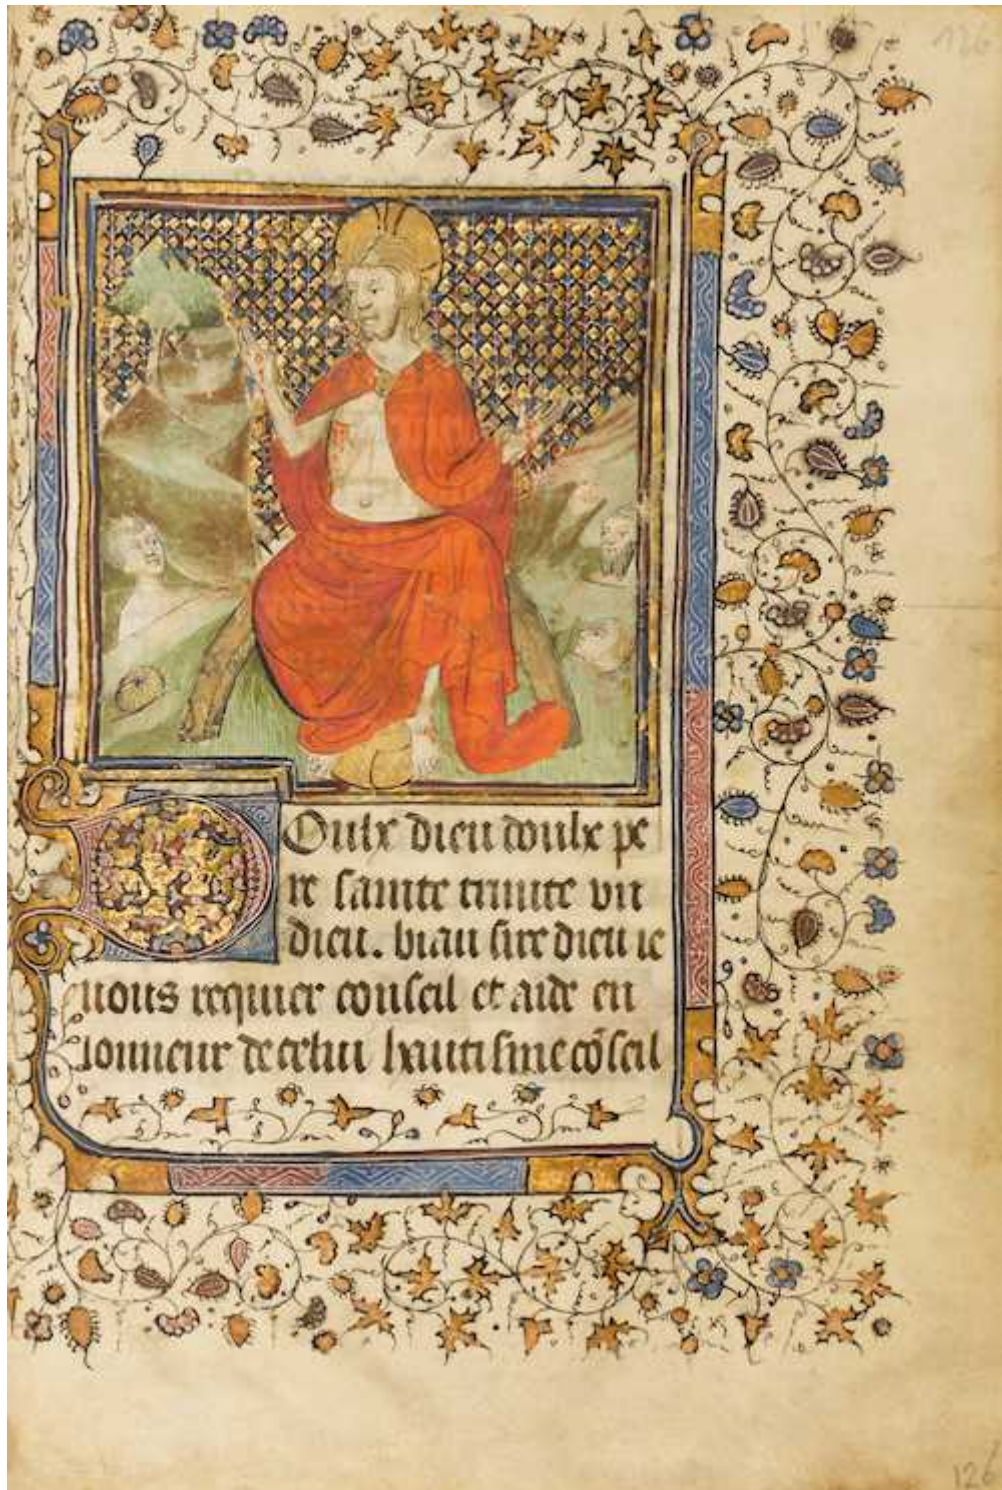 126
Doulx dieu doulx pe
re sainte trinite vn
dieu. biau sire dieu ie
uous requier conseil et aide en
lonneur de celui hautisme cõseil
126